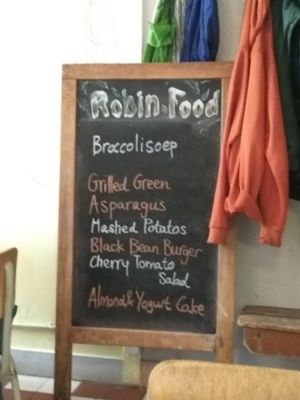 Robin Food
Broccolisoep
Grilled Green
Asparagus
Mashed Potatos
Black Bean Burger
Cherry Tomato
Salad
Almond & Yogurt Cake